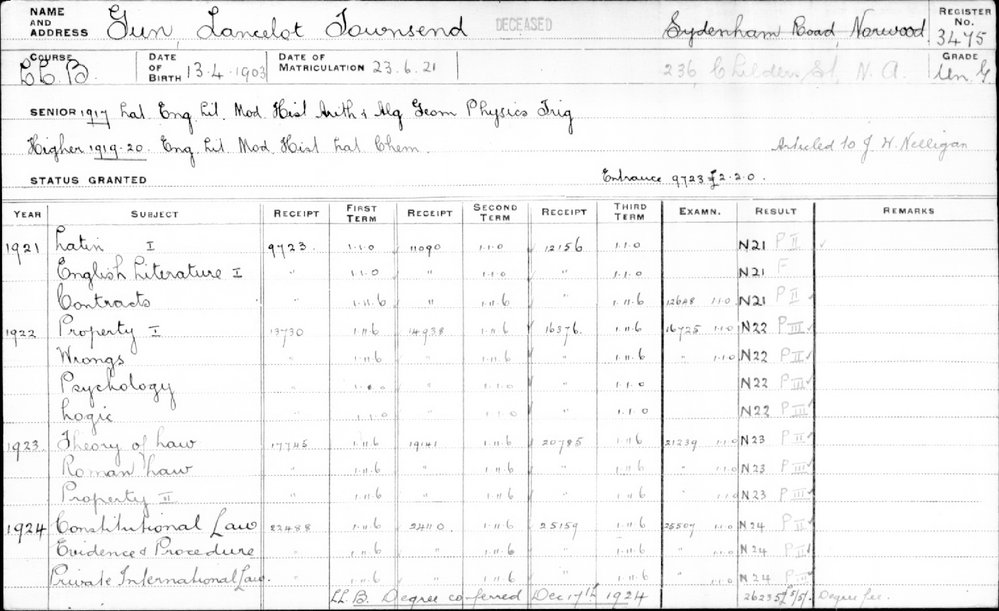 NAME AND ADDRESS Gun, Lancelot Townsend DECEASED Sydenham Road, Norwood REGISTER No. 3475
COURSE LL.B. DATE OF BIRTH 13.4.1903 DATE OF MATRICULATION 23.6.21 236 Childers St, N. A. GRADE Un. G
SENIOR 1917 Lat. Eng. Lit. Mod. Hist Arith & Alg Geom Physics Trig
Higher 1919-20. Eng. Lit. Mod. Hist Lat Chem. Articled to J. H. Nelligan
STATUS GRANTED Entrance 9723 £2.2.0.
YEAR SUBJECT RECEIPT FIRST TERM RECEIPT SECOND TERM RECEIPT THIRD TERM EXAMN. RESULT REMARKS
1921 Latin I 9723. 1.1.0 11090 1.1.0 12156 1.1.0 N21 P II ✓
English Literature I " 1.1.0 " 1.1.0 " 1.1.0 N21 F
Contracts " 1.11.6 " 1.11.6 " 1.11.6 12648 1.1.0 N21 P II ✓
1922 Property I 13730 1.11.6 14938 1.11.6 16376 1.11.6 16725 1.1.0 N22 P III ✓
Wrongs " 1.11.6 " 1.11.6 " 1.11.6 " 1.1.0 N22 P II ✓
Psychology " 1.1.0 " 1.1.0 " 1.1.0 N22 P III ✓
Logic " 1.1.0 " 1.1.0 " 1.1.0 N22 P III ✓
1923. Theory of Law 17745 1.11.6 19141 1.11.6 20785 1.11.6 21239 1.1.0 N23 P II ✓
Roman Law " 1.11.6 " 1.11.6 " 1.11.6 " 1.1.0 N23 P III ✓
Property II " 1.11.6 " 1.11.6 " 1.11.6 " 1.1.0 N23 P III ✓
1924 Constitutional Law 22488 1.11.6 24110. 1.11.6 25159 1.11.6 25507 1.1.0 N24 P II ✓
Evidence & Procedure " 1.11.6 " 1.11.6 " 1.11.6 " 1.1.0 N24 P II ✓
Private International Law. " 1.11.6 " 1.11.6 " 1.11.6 " 1.1.0 N24 P III ✓
LL.B. Degree conferred Dec 17th 1924 26235 £5/5/- Degree fee.